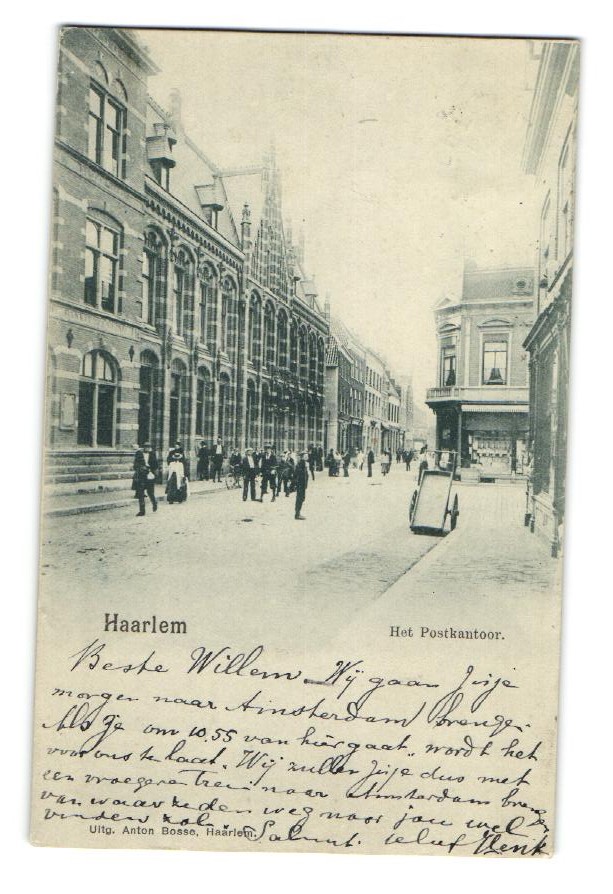 Haarlem
Het Postkantoor.
Beste Willem Wij gaan Jisje
morgen naar Amsterdam brengen.
Als ze om 10.55 van hier gaat, wordt het
voor ons te laat. Wij zullen Jisje dus met
een vroegeren trein naar Amsterdam brengen
van waar ze den weg naar jou wel
vinden zal. Saluut. Henk
Uitg. Anton Bosse, Haarlem.